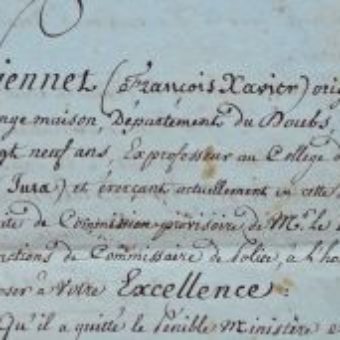 iennet (François Xavier) ori
nge maison, Département du Doubs,
gt neuf ans, Exprofesseur au College d
Jura) et exerçant actuellement en cette
ité de Commission provisoire de Mr. le
nctions de Commissaire de Police, a l'ho
oser à Votre Excellence.
Qu'il a quitté le pénible Ministère e